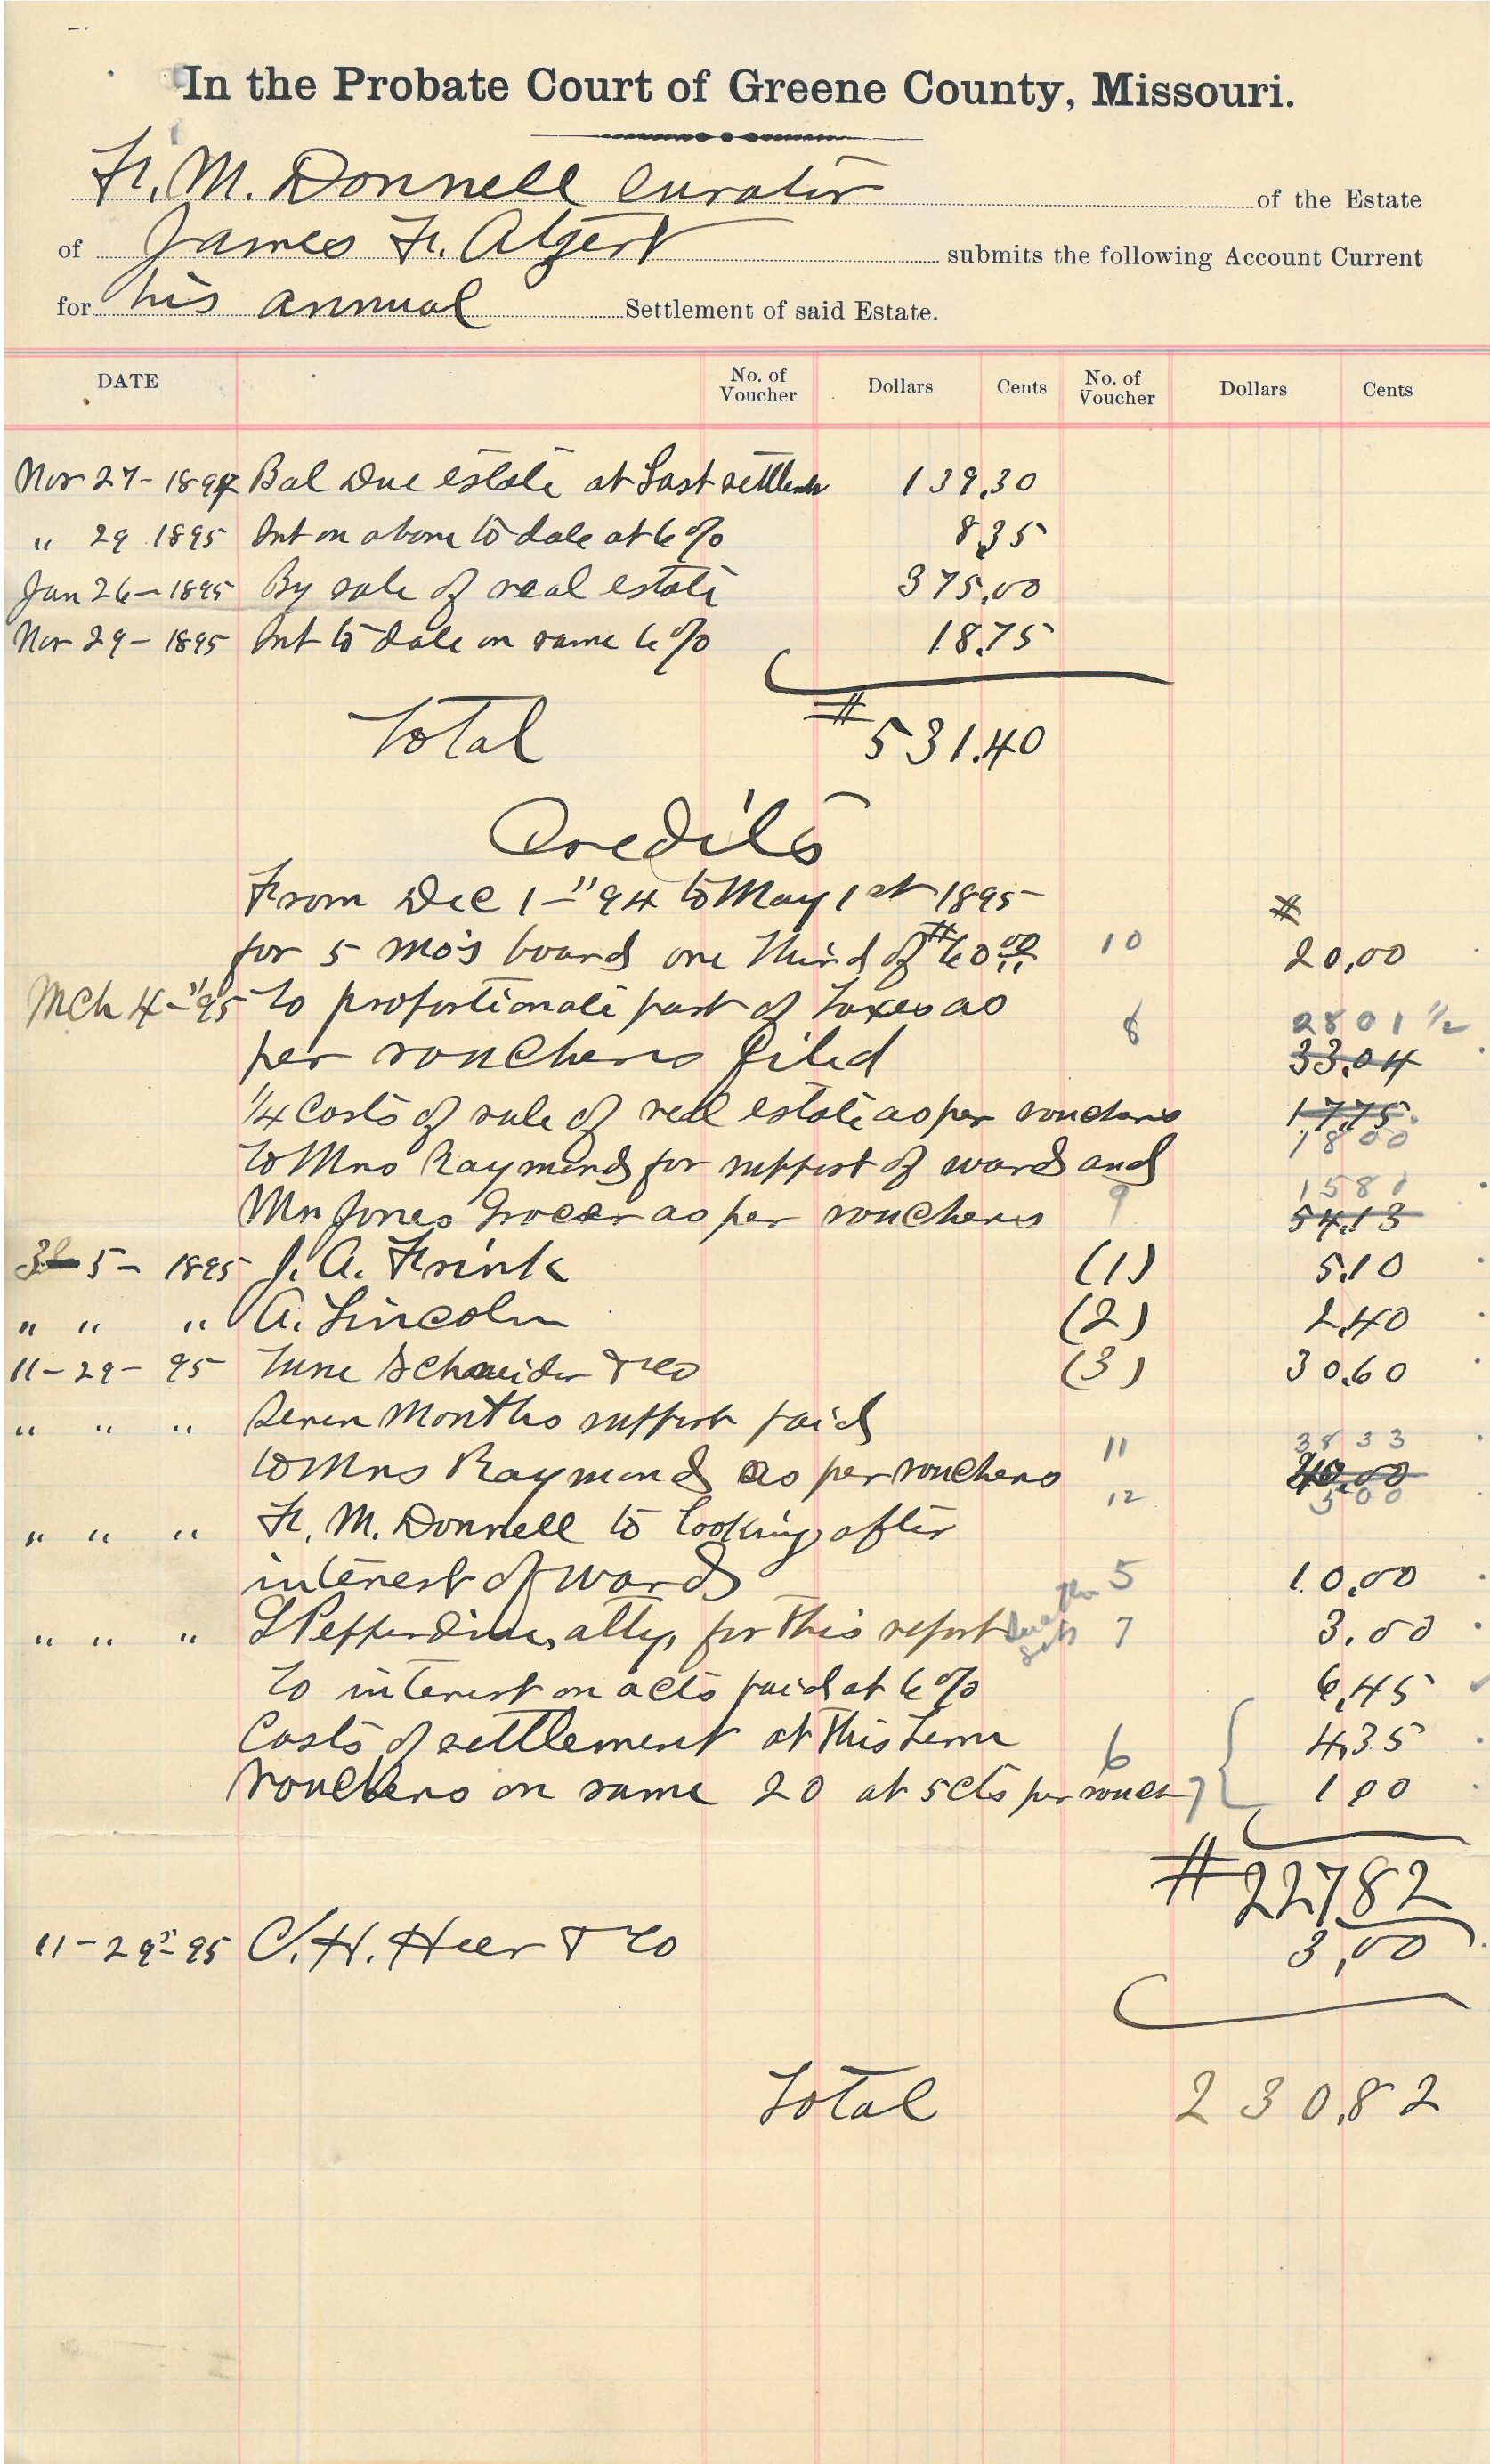 In the Probate Court of Greene County, Missouri.
F. M. Donnell Curator of the Estate
of James F. Algert submits the following Account Current
for his annual Settlement of said Estate.
DATE No. of Voucher Dollars Cents No. of Voucher Dollars Cents
Nov 27 - 1894 Bal Due estate at Last settlem 139.30
" 29 1895 Int on above to date at 6% 8.35
Jan 26 - 1895 By sale of real estate 375.00
Nov 29 - 1895 Int to date on same 6% 18.75
Total $531.40
Credits
From Dec 1 - "94 to May 1st 1895 $
for 5 mo's board one third of $60.00 10 20.00
Mch 4 - "95 to proportionate part of Taxes as 2801 1/2
per vouchers filed 8 33.04
1/4 Costs of sale of real estate as per vouchers 17.75
1800
to Mrs Raymond for support of ward and
1581
Mr Jones Grocer as per vouchers 9 54.13
5 - 1895 J. A. Frink (1) 5.10
" " " A. Lincoln (2) 2.40
11 - 29 - 95 Schneider & Co (3) 30.60
" " " Seven Months support paid
3833
to Mrs Raymond as per vouchers 11 40.00
12 500
" " " F. M. Donnell to looking after
interest of ward 5 10.00
" " " Pepperdine, atty, for this report 7 3.00
to interest on accts paid at 6% 6.45
Costs of settlement at this term 6 4.35
vouchers on same 20 at 5cts per vouch 7 1.00
$227.82
11 - 29 - 95 C. H. Heer & Co 3.00
Total 230.82